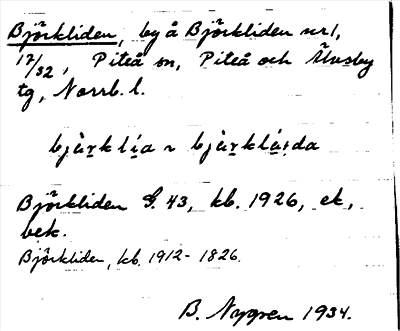 Björkliden, by å Björkliden nr 1,
17/32, Piteå sn, Piteå och Älvsby
tg, Norrb. l.
bjùrklía ~ bjùrklída
Björkliden G. 43, kb. 1926, ek,
bek.
Björkliden, kb. 1912-1826.
B. Nygren 1934.